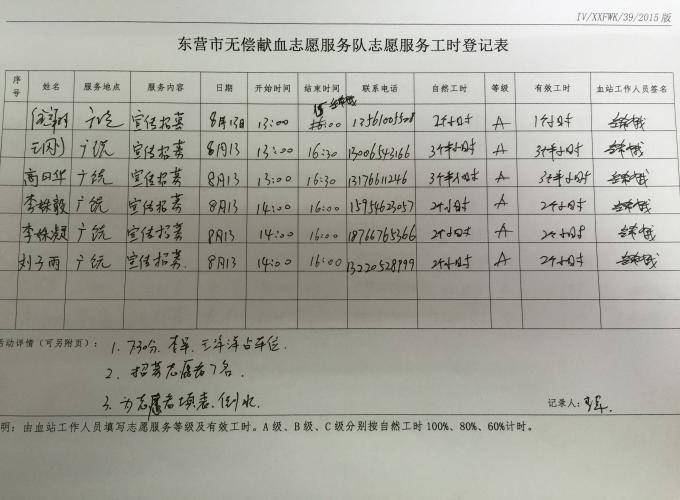 IV/XXFWK/39/2015 版
东营市无偿献血志愿服务队志愿服务工时登记表
序号 姓名 服务地点 服务内容 日期 开始时间 结束时间 联系电话 自然工时 等级 有效工时 血站工作人员签名
广饶 宣传招募 8月13日 13:00 15:00 13561005508 2小时 A
王刚 广饶 宣传招募 8月13 13:00 16:30 13006543166 3个半小时 A 3个半小时
高日华 广饶 宣传招募 8月13 13:00 16:30 13176611246 3个半小时 A 3个半小时
李姝毅 广饶 宣传招募 8月13 14:00 16:00 15954623057 2个小时 A 2个小时
李姝凝 广饶 宣传招募 8月13 14:00 16:00 18766765366 2个小时 A 2个小时
刘子雨 广饶 宣传招募. 8月13 14:00 16:00 13220528999 2个小时 A 2个小时
活动详情（可另附页）： 1. 7:30分, 李军, 王洋洋占车位.
2. 招募志愿者7名
3. 为志愿者填表, 倒水
记录人：
明：由血站工作人员填写志愿服务等级及有效工时。A 级、B 级、C 级分别按自然工时 100%、80%、60%计时。